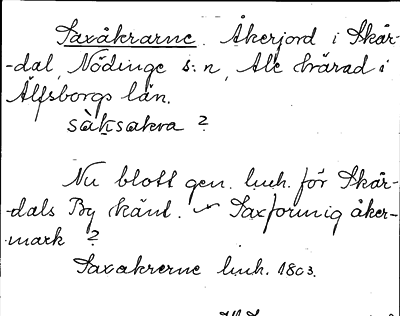 Saxåkrarne. Åkerjord i Skår-
-dal, Nödinge s:n, Ale härad i
Älfsborgs län.
såksakra ?
Nu blott gen. luh. för Skår-
-dals By känt. Saxformig åker-
mark ?
Saxakrerne luh. 1803.